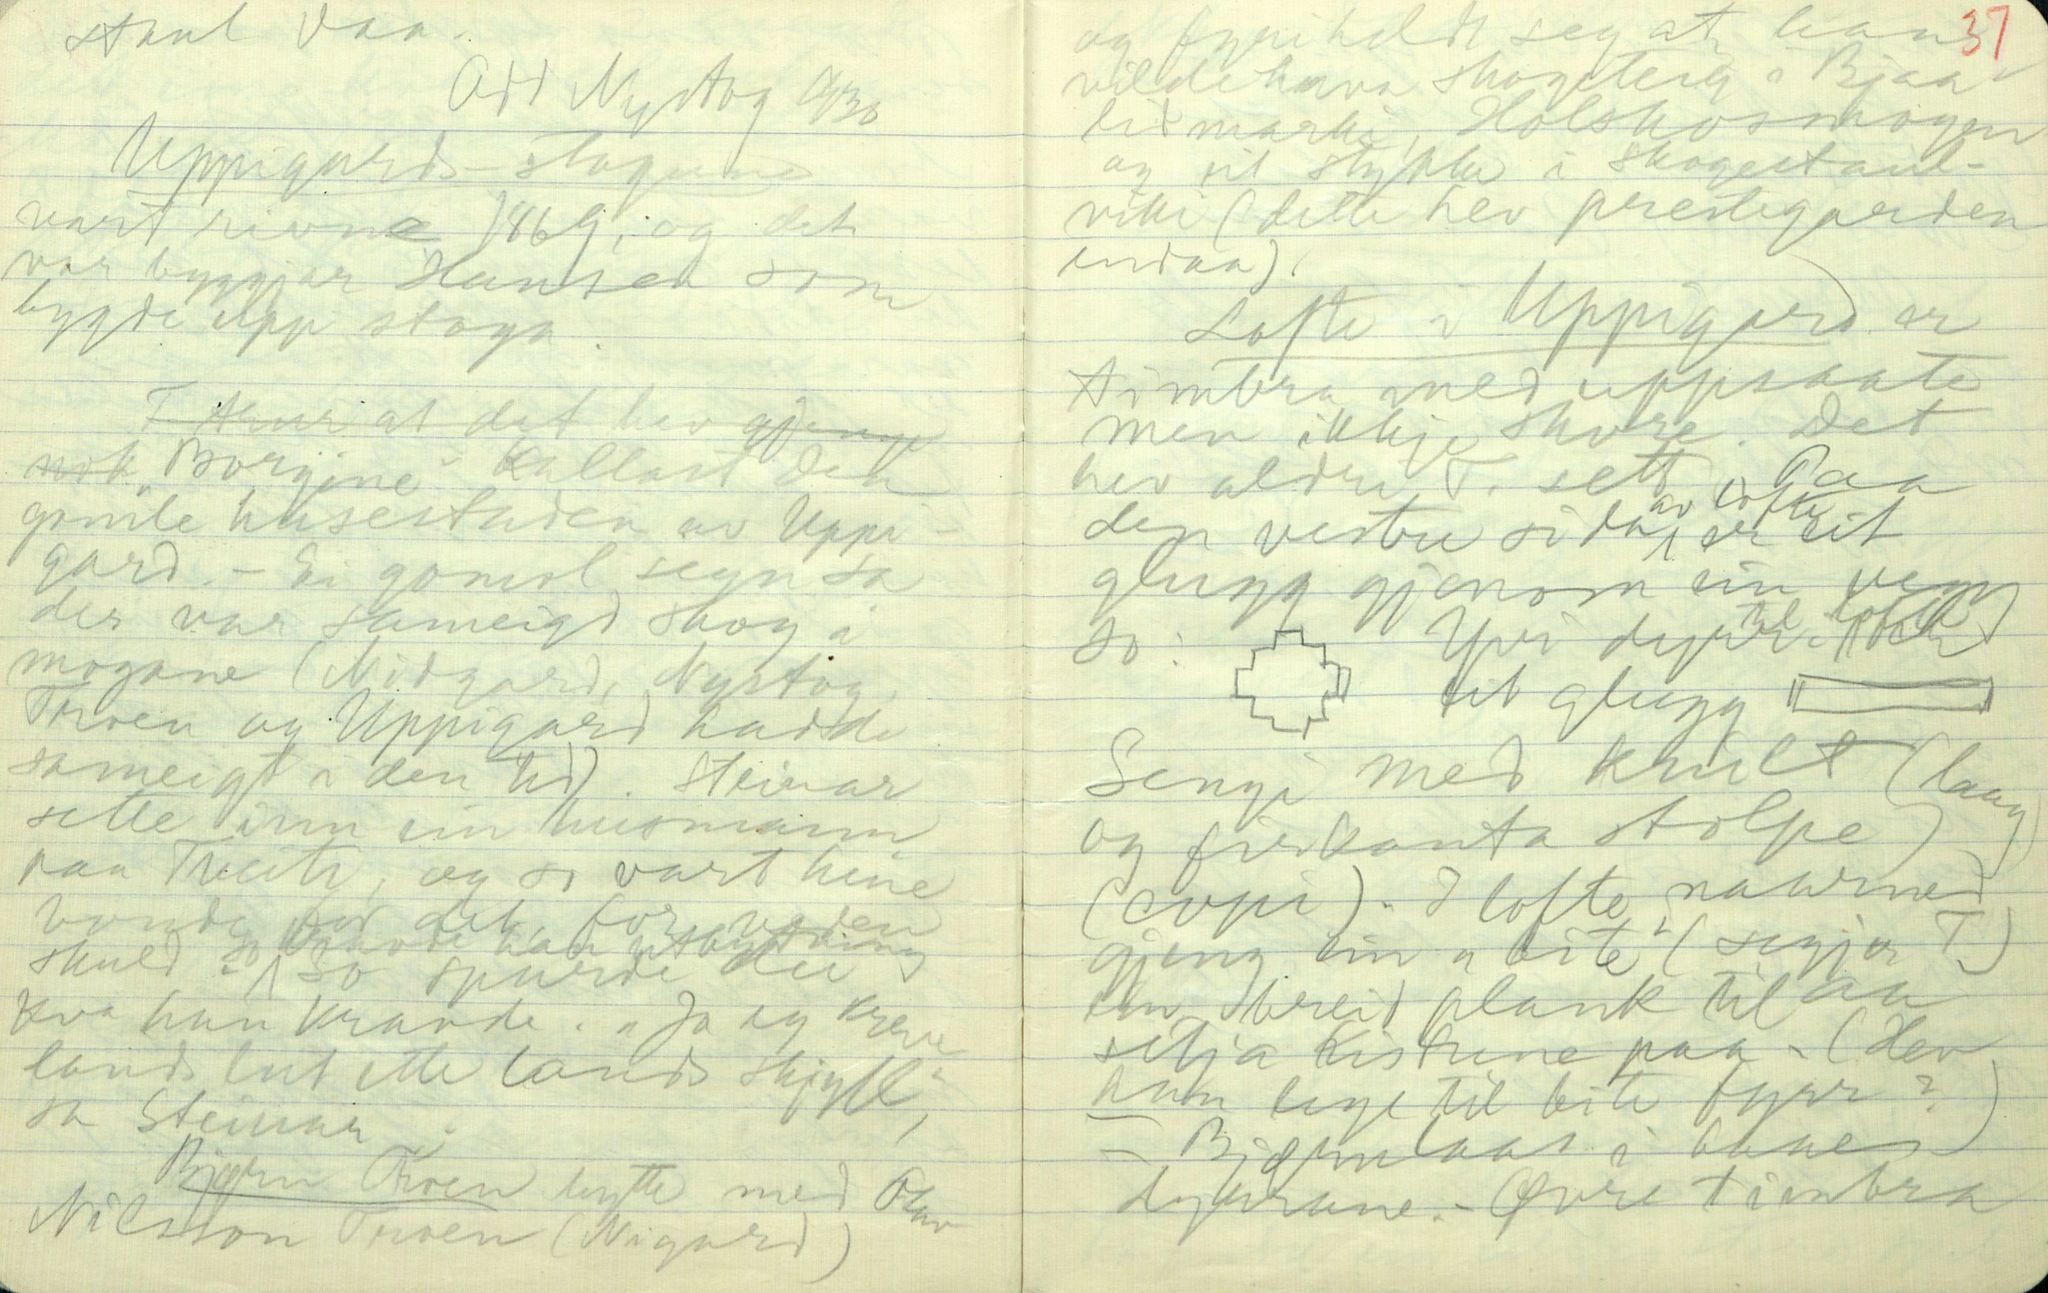 staul Vaa.
Odd Nystog 1930
Uppigards-stogune
vart rivne 1869, og det
var byggjar Hansen som
bygde upp stoga.
T. trur at det hev gjenge
nok "Borgine" kallast den
gamle husestaden av Uppi-
gard. - Ei gomol segn sa
der var sameigd skog i
mogane (Midgard, Nystog,
Troen og Uppigard hadde
sameigt i den tid). Steinar
sette inn ein husmann
paa Treiti, og so vart hine
vonde for det, for veden
skuld so kravde han utskifting
so spurde dei
kva han kravde. "Ja eg kreve
lands lut ette lands skjyll",
sa Steinar.
Bjørn Troen bytte med Olav
Nilsson Troen (Nigard)
37
og fyriheldt seg at han
vilde hava skogteig i Bjaa-
lidmarki, Holskosmogen
og eit stykke i Skogestaul-
viki (dette hev prestegarden
endaa).
Lofte i Uppigard er
timbra med uppsaate
men ikkje skore. Det
hev aldri T. sett. Paa
den vestre sida av lofte er eit
glugg gjenom ein vegg
so: Yvi dynni til lofte
eit glugg
Sengi med krull (laag
og firkanta stolpe)
(svpi). I lofte
gjeng ein "bite" (segjer T.)
ein breid plank til aa
setja kistune paa - (Hev
han lege til bite fyrr?)
- Bjørnlaas i baae
dynnane. - Øvre timbra